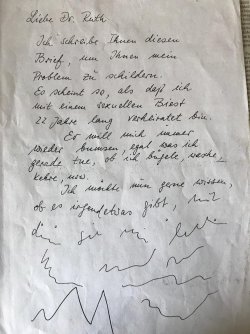 Liebe Dr. Ruth.
Ich schreibe Ihnen diesen
Brief, um Ihnen mein
Problem zu schildern.
Es scheint so, als daß ich
mit einem sexuellen Biest
22 Jahre lang verheiratet bin.
Er will mich immer
wieder bumsen, egal was ich
gerade tue, ob ich bügele, wasche,
kehre, usw.
Ich möchte nun gerne wissen,
ob es irgendetwas gibt, mit